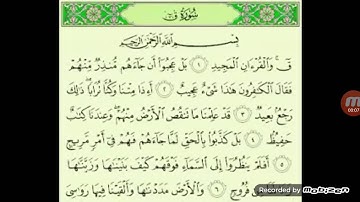 سُورَةُ ق
بِسْمِ اللَّهِ الرَّحْمَٰنِ الرَّحِيمِ
قٓ ۚ وَالْقُرْءَانِ الْمَجِيدِ ١ بَلْ عَجِبُوٓا۟ أَن جَآءَهُم مُّنذِرٌ مِّنْهُمْ
فَقَالَ الْكَٰفِرُونَ هَٰذَا شَىْءٌ عَجِيبٌ ٢ أَءِذَا مِتْنَا وَكُنَّا تُرَابًا ۖ ذَٰلِكَ
رَجْعٌۢ بَعِيدٌ ٣ قَدْ عَلِمْنَا مَا تَنقُصُ الْأَرْضُ مِنْهُمْ ۖ وَعِندَنَا كِتَٰبٌ
حَفِيظٌۢ ٤ بَلْ كَذَّبُوا۟ بِالْحَقِّ لَمَّا جَآءَهُمْ فَهُمْ فِىٓ أَمْرٍ مَّرِيجٍ
٥ أَفَلَمْ يَنظُرُوٓا۟ إِلَى السَّمَآءِ فَوْقَهُمْ كَيْفَ بَنَيْنَٰهَا وَزَيَّنَّٰهَا
فُرُوجٍ ٦ وَالْأَرْضَ مَدَدْنَٰهَا وَأَلْقَيْنَا فِيهَا رَوَٰسِىَ
00:07
Recorded by Mobizen